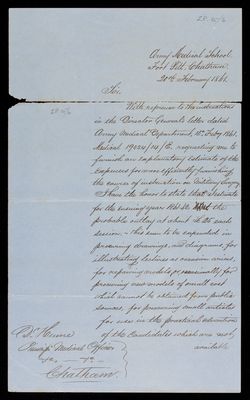 Army Medical School.
Fort Pitt, Chatham.
20th February 1861.
Sir,
With reference to the instructions
in the Director General's letter dated
Army Medical Department, 15th Feby 1861,
Medical requesting me to
furnish an explanatory estimate of the
expenses for more efficiently furnishing
the course of instruction on Military Surgery
I have the honor to state that I estimate
for the ensuing year 1861-62 the
probable outlay at about £25 each
session. - this sum to be expended in
procuring drawings, and diagrams, for
illustrating lectures as occasion arises,
for repairing models or occasionally for
procuring new models of small cost
which cannot be obtained from public
sources, for procuring small articles
for use in the practical education
of the Candidates which are not
available
Principal Medical Officer
&c &c
Chatham.